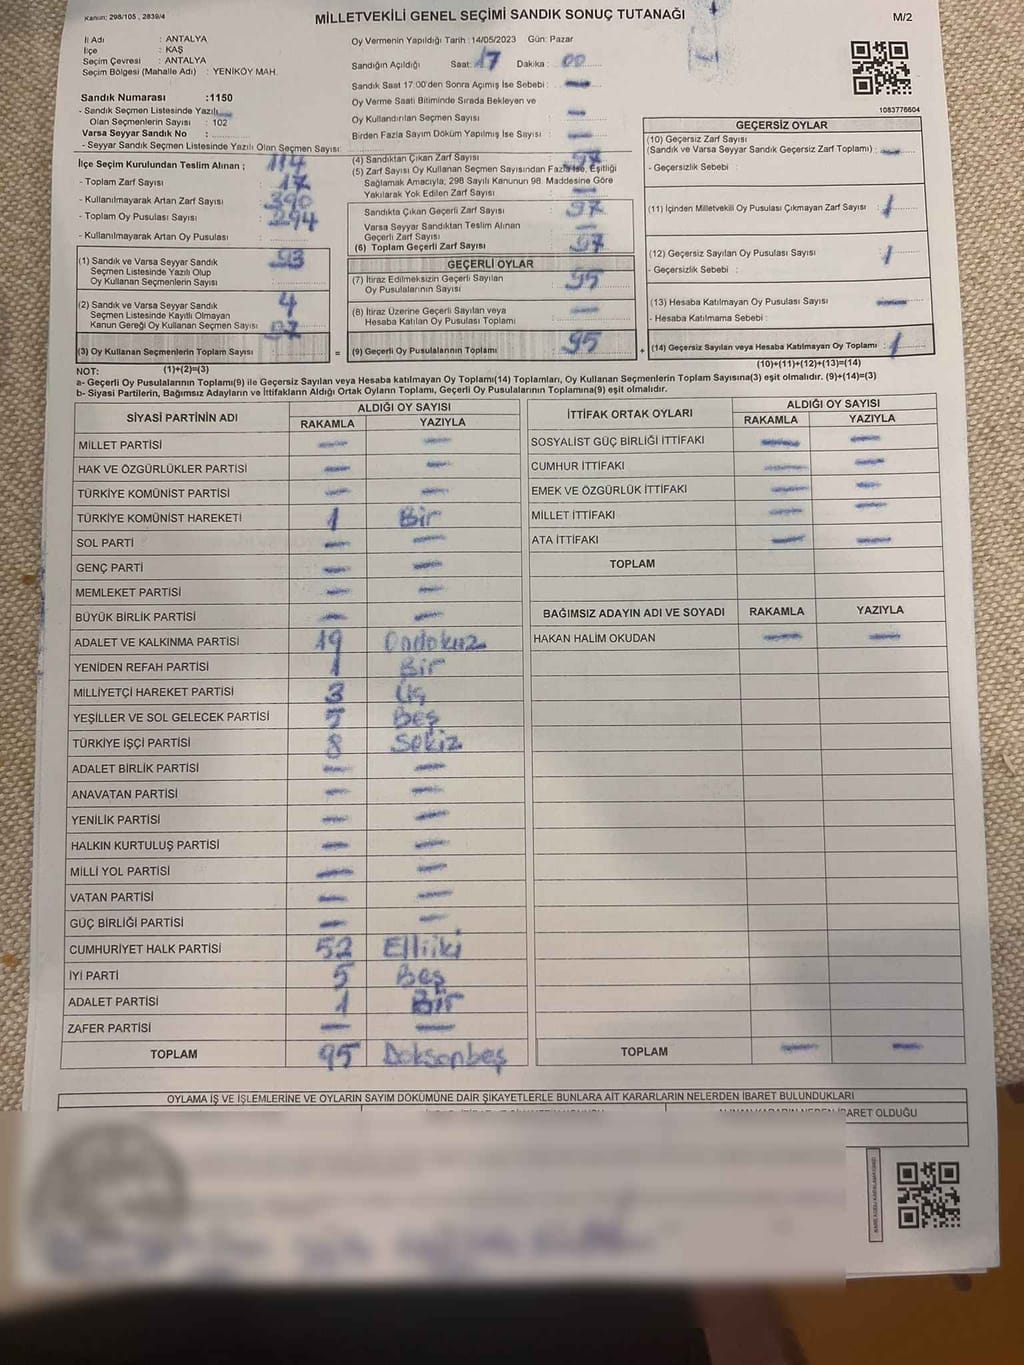 Kanun; 298/105 , 2839/4
MİLLETVEKİLİ GENEL SEÇİMİ SANDIK SONUÇ TUTANAĞI
M/2
İl Adı : ANTALYA
İlçe : KAŞ
Seçim Çevresi : ANTALYA
Seçim Bölgesi (Mahalle Adı) : YENİKÖY MAH.
Sandık Numarası :1150
- Sandık Seçmen Listesinde Yazılı
Olan Seçmenlerin Sayısı : 102
Varsa Seyyar Sandık No :
- Seyyar Sandık Seçmen Listesinde Yazılı Olan Seçmen Sayısı:
Oy Vermenin Yapıldığı Tarih :14/05/2023 Gün: Pazar
Sandığın Açıldığı Saat: 17 Dakika : 00
Sandık Saat 17:00'den Sonra Açımış İse Sebebi : —
Oy Verme Saati Bitiminde Sırada Bekleyen ve
Oy Kullandırılan Seçmen Sayısı —
Birden Fazla Sayım Döküm Yapılmış İse Sayısı : —
1083776604
İlçe Seçim Kurulundan Teslim Alınan ; 114
- Toplam Zarf Sayısı : 17
- Kullanılmayarak Artan Zarf Sayısı : 390
- Toplam Oy Pusulası Sayısı : 294
- Kullanılmayarak Artan Oy Pusulası :
(1) Sandık ve Varsa Seyyar Sandık 93
Seçmen Listesinde Yazılı Olup
Oy Kullanan Seçmenlerin Sayısı
(2) Sandık ve Varsa Seyyar Sandık 4
Seçmen Listesinde Kayıtlı Olmayan
Kanun Gereği Oy Kullanan Seçmen Sayısı 97
(3) Oy Kullanan Seçmenlerin Toplam Sayısı =
(4) Sandıktan Çıkan Zarf Sayısı 97
(5) Zarf Sayısı Oy Kullanan Seçmen Sayısından Fazla İse, Eşitliği
Sağlamak Amacıyla; 298 Sayılı Kanunun 98. Maddesine Göre
Yakılarak Yok Edilen Zarf Sayısı —
Sandıkta Çıkan Geçerli Zarf Sayısı 97
Varsa Seyyar Sandıktan Teslim Alınan
Geçerli Zarf Sayısı —
(6) Toplam Geçerli Zarf Sayısı 97
GEÇERLİ OYLAR
(7) İtiraz Edilmeksizin Geçerli Sayılan
Oy Pusulalarının Sayısı 95
(8) İtiraz Üzerine Geçerli Sayılan veya
Hesaba Katılan Oy Pusulası Toplamı —
(9) Geçerli Oy Pusulalarının Toplamı 95 +
GEÇERSİZ OYLAR
(10) Geçersiz Zarf Sayısı
(Sandık ve Varsa Seyyar Sandık Geçersiz Zarf Toplamı) : —
- Geçersizlik Sebebi :
(11) İçinden Milletvekili Oy Pusulası Çıkmayan Zarf Sayısı 1
(12) Geçersiz Sayılan Oy Pusulası Sayısı 1
- Geçersizlik Sebebi :
(13) Hesaba Katılmayan Oy Pusulası Sayısı —
- Hesaba Katılmama Sebebi :
(14) Geçersiz Sayılan veya Hesaba Katılmayan Oy Toplamı 1
NOT: (1)+(2)=(3)
(10)+(11)+(12)+(13)=(14)
a- Geçerli Oy Pusulalarının Toplamı(9) ile Geçersiz Sayılan veya Hesaba katılmayan Oy Toplamı(14) Toplamları, Oy Kullanan Seçmenlerin Toplam Sayısına(3) eşit olmalıdır. (9)+(14)=(3)
b- Siyasi Partilerin, Bağımsız Adayların ve İttifakların Aldığı Ortak Oyların Toplamı, Geçerli Oy Pusulalarının Toplamına(9) eşit olmalıdır.
SİYASİ PARTİNİN ADI ALDIĞI OY SAYISI
RAKAMLA YAZIYLA
MİLLET PARTİSİ — —
HAK VE ÖZGÜRLÜKLER PARTİSİ — —
TÜRKİYE KOMÜNİST PARTİSİ — —
TÜRKİYE KOMÜNİST HAREKETİ 1 Bir
SOL PARTİ — —
GENÇ PARTİ — —
MEMLEKET PARTİSİ — —
BÜYÜK BİRLİK PARTİSİ — —
ADALET VE KALKINMA PARTİSİ 19 Ondokuz
YENİDEN REFAH PARTİSİ 1 Bir
MİLLİYETÇİ HAREKET PARTİSİ 3 Üç
YEŞİLLER VE SOL GELECEK PARTİSİ 5 Beş
TÜRKİYE İŞÇİ PARTİSİ 8 Sekiz
ADALET BİRLİK PARTİSİ — —
ANAVATAN PARTİSİ — —
YENİLİK PARTİSİ — —
HALKIN KURTULUŞ PARTİSİ — —
MİLLİ YOL PARTİSİ — —
VATAN PARTİSİ — —
GÜÇ BİRLİĞİ PARTİSİ — —
CUMHURİYET HALK PARTİSİ 52 Elliiki
İYİ PARTİ 5 Beş
ADALET PARTİSİ 1 Bir
ZAFER PARTİSİ — —
TOPLAM 95 Doksanbeş
İTTİFAK ORTAK OYLARI ALDIĞI OY SAYISI
RAKAMLA YAZIYLA
SOSYALİST GÜÇ BİRLİĞİ İTTİFAKI — —
CUMHUR İTTİFAKI — —
EMEK VE ÖZGÜRLÜK İTTİFAKI — —
MİLLET İTTİFAKI — —
ATA İTTİFAKI — —
TOPLAM
BAĞIMSIZ ADAYIN ADI VE SOYADI RAKAMLA YAZIYLA
HAKAN HALİM OKUDAN — —
TOPLAM — —
OYLAMA İŞ VE İŞLEMLERİNE VE OYLARIN SAYIM DÖKÜMÜNE DAİR ŞİKAYETLERLE BUNLARA AİT KARARLARIN NELERDEN İBARET BULUNDUKLARI
İBARET OLDUĞU